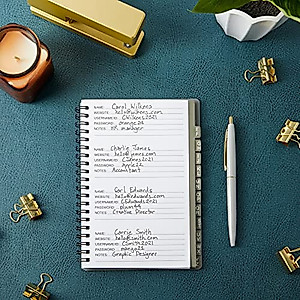 NAME: Carol Wilkens
WEBSITE: hello@wilkens.com
USERNAME/ID: CWilkens2021
PASSWORD: orange24
NOTES: HR manager
NAME: Charlie James
WEBSITE: hello@james.com
USERNAME/ID: CJames2021
PASSWORD: apple22
NOTES: Accountant
NAME: Carl Edwards
WEBSITE: hello@edwards.com
USERNAME/ID: CEdwards2021
PASSWORD: plum44
NOTES: Creative Director
NAME: Carrie Smith
WEBSITE: hello@smith.com
USERNAME/ID: CSmith2021
PASSWORD: mango21
NOTES: Graphic Designer